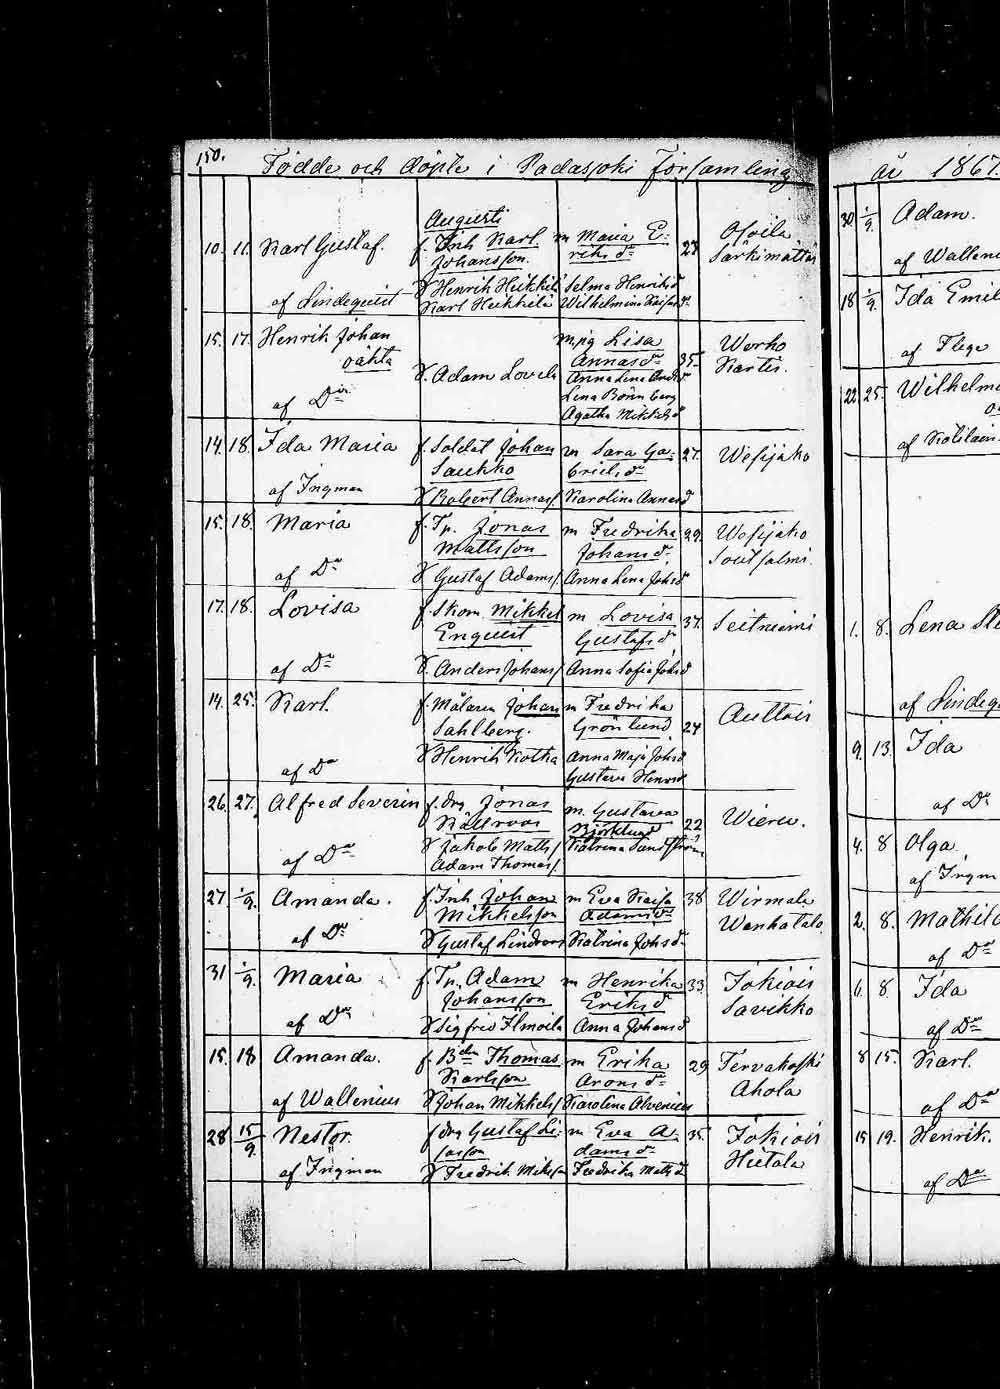 150.
Födde och döpte i Padasjoki Församling
år 1867.
Augusti
10. 11. Karl Gustaf. f. Inh Karl m Maria E- 27
Johansson. riks dr Särkimattas
V Henrik Heikkilä Selma Henriks d
af Lindequist Karl Heikkilä Wilhelmina
15. 17. Henrik Johan m pig Lisa Werho
oäkta Annas dr 35. Kartis.
V. Adam Anna Lena
af Do Lena
Agatha Mikkels d
14. 18. Ida Maria f. Soldat Johan m Sara Ga- 27. Wesijako
Saukko briels dr
af Ingman V Robert Annas Karolina Annas d
15. 18. Maria f. Tp. Jonas m Fredrika 29. Wesijako
Mattsson Johans dr Soutsalmi.
af Do V Gustaf Adams Anna Lena Johs d
17. 18. Lovisa f. Skom Mikkel m Lovisa 37. Seitniemi
Enquist Gustafs dr
af Do V. Anders Johans Anna Sofia Johs d
14. 25. Karl. f. Målaren Johan m Fredrika Auttois
Sahlberg. Grönlund. 24
V Henrik Kotka Anna Maja Johs d
af Do Gustava Henrs d
26. 27. Alfred Severin f. drg Jonas m. Gustava Wieru.
Källroos Björklund 22
V Jakob Matts Katrina Sandström
af Do Adam Thomas
27. 1/9. Amanda. f. Inh Johan m Eva Kaisa 38 Wirmala
Mikkelsson Adams dr Wanhatalo.
af Do V Gustaf Lindroos Katrina Johs d
31 1/9. Maria f. Tp. Adam m Henrika 33. Jokiois
Johansson Eriks d Savikko
af Do V Sigfrid Ilmoila Anna Johans d
15. 18 Amanda. f. Bdn Thomas m Erika 29 Tervakoski
Karlsson Arons dr Ahola
af Wallenius V Johan Mikkels Karolina Alvenius
28 15/9. Nestor. f drg Gustaf Li- m Eva A- 35. Jokiois
sasson dams dr Hietala
af Ingman V Fredrik Mikss Fredrika Matts d
30. 1/9. Adam.
af Walleni
18 1/9. Ida Emil
af Flege
22. 25. Wilhelm
af
1. 8. Lena
af Lindeq
9. 13. Ida
af Do
4. 8 Olga
af Ingm
2. 8. Mathil
af Do
6. 8 Ida
af Do
8 15. Karl.
af Do
15 19. Henrik.
af Do